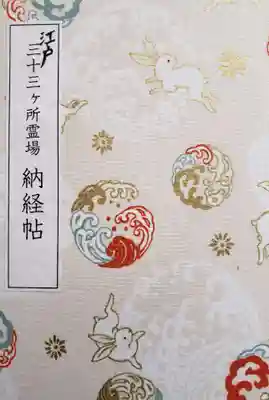 江戸
三十三ヶ所霊場
納経帖